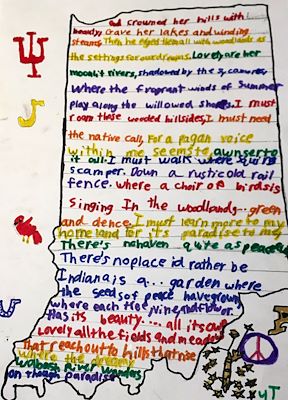 God crowned her hills with
beauty Gave her lakes and winding
streams Then he edged them all with woodlands as
the settings for our dreams. Lovely are her
moonlit rivers, shadowed by the sycamores,
Where the fragrant winds of Summer
play along the willowed shores. I must
roam those wooded hillsides, I must heed
the native call, For a pagan voice
within me seems to, aunserto
it all. I must walk where squirls
scamper. Down a rustic old rail
fence. where a choir of birds is
Singing In the woodlands... green
and dence. I must learn more to my
homeland for it's paradise to my
There's no haven quite as peaceful
There's no place i'd rather be
Indiana is a... garden where
the seeds of peace have grown,
where each tree, vine, and flower.
Has its beauty.... all its own
Lovely all the fields and meadows
that reach out to hills that rise
where the dreamy
Wabash River Wanders
on though paradise